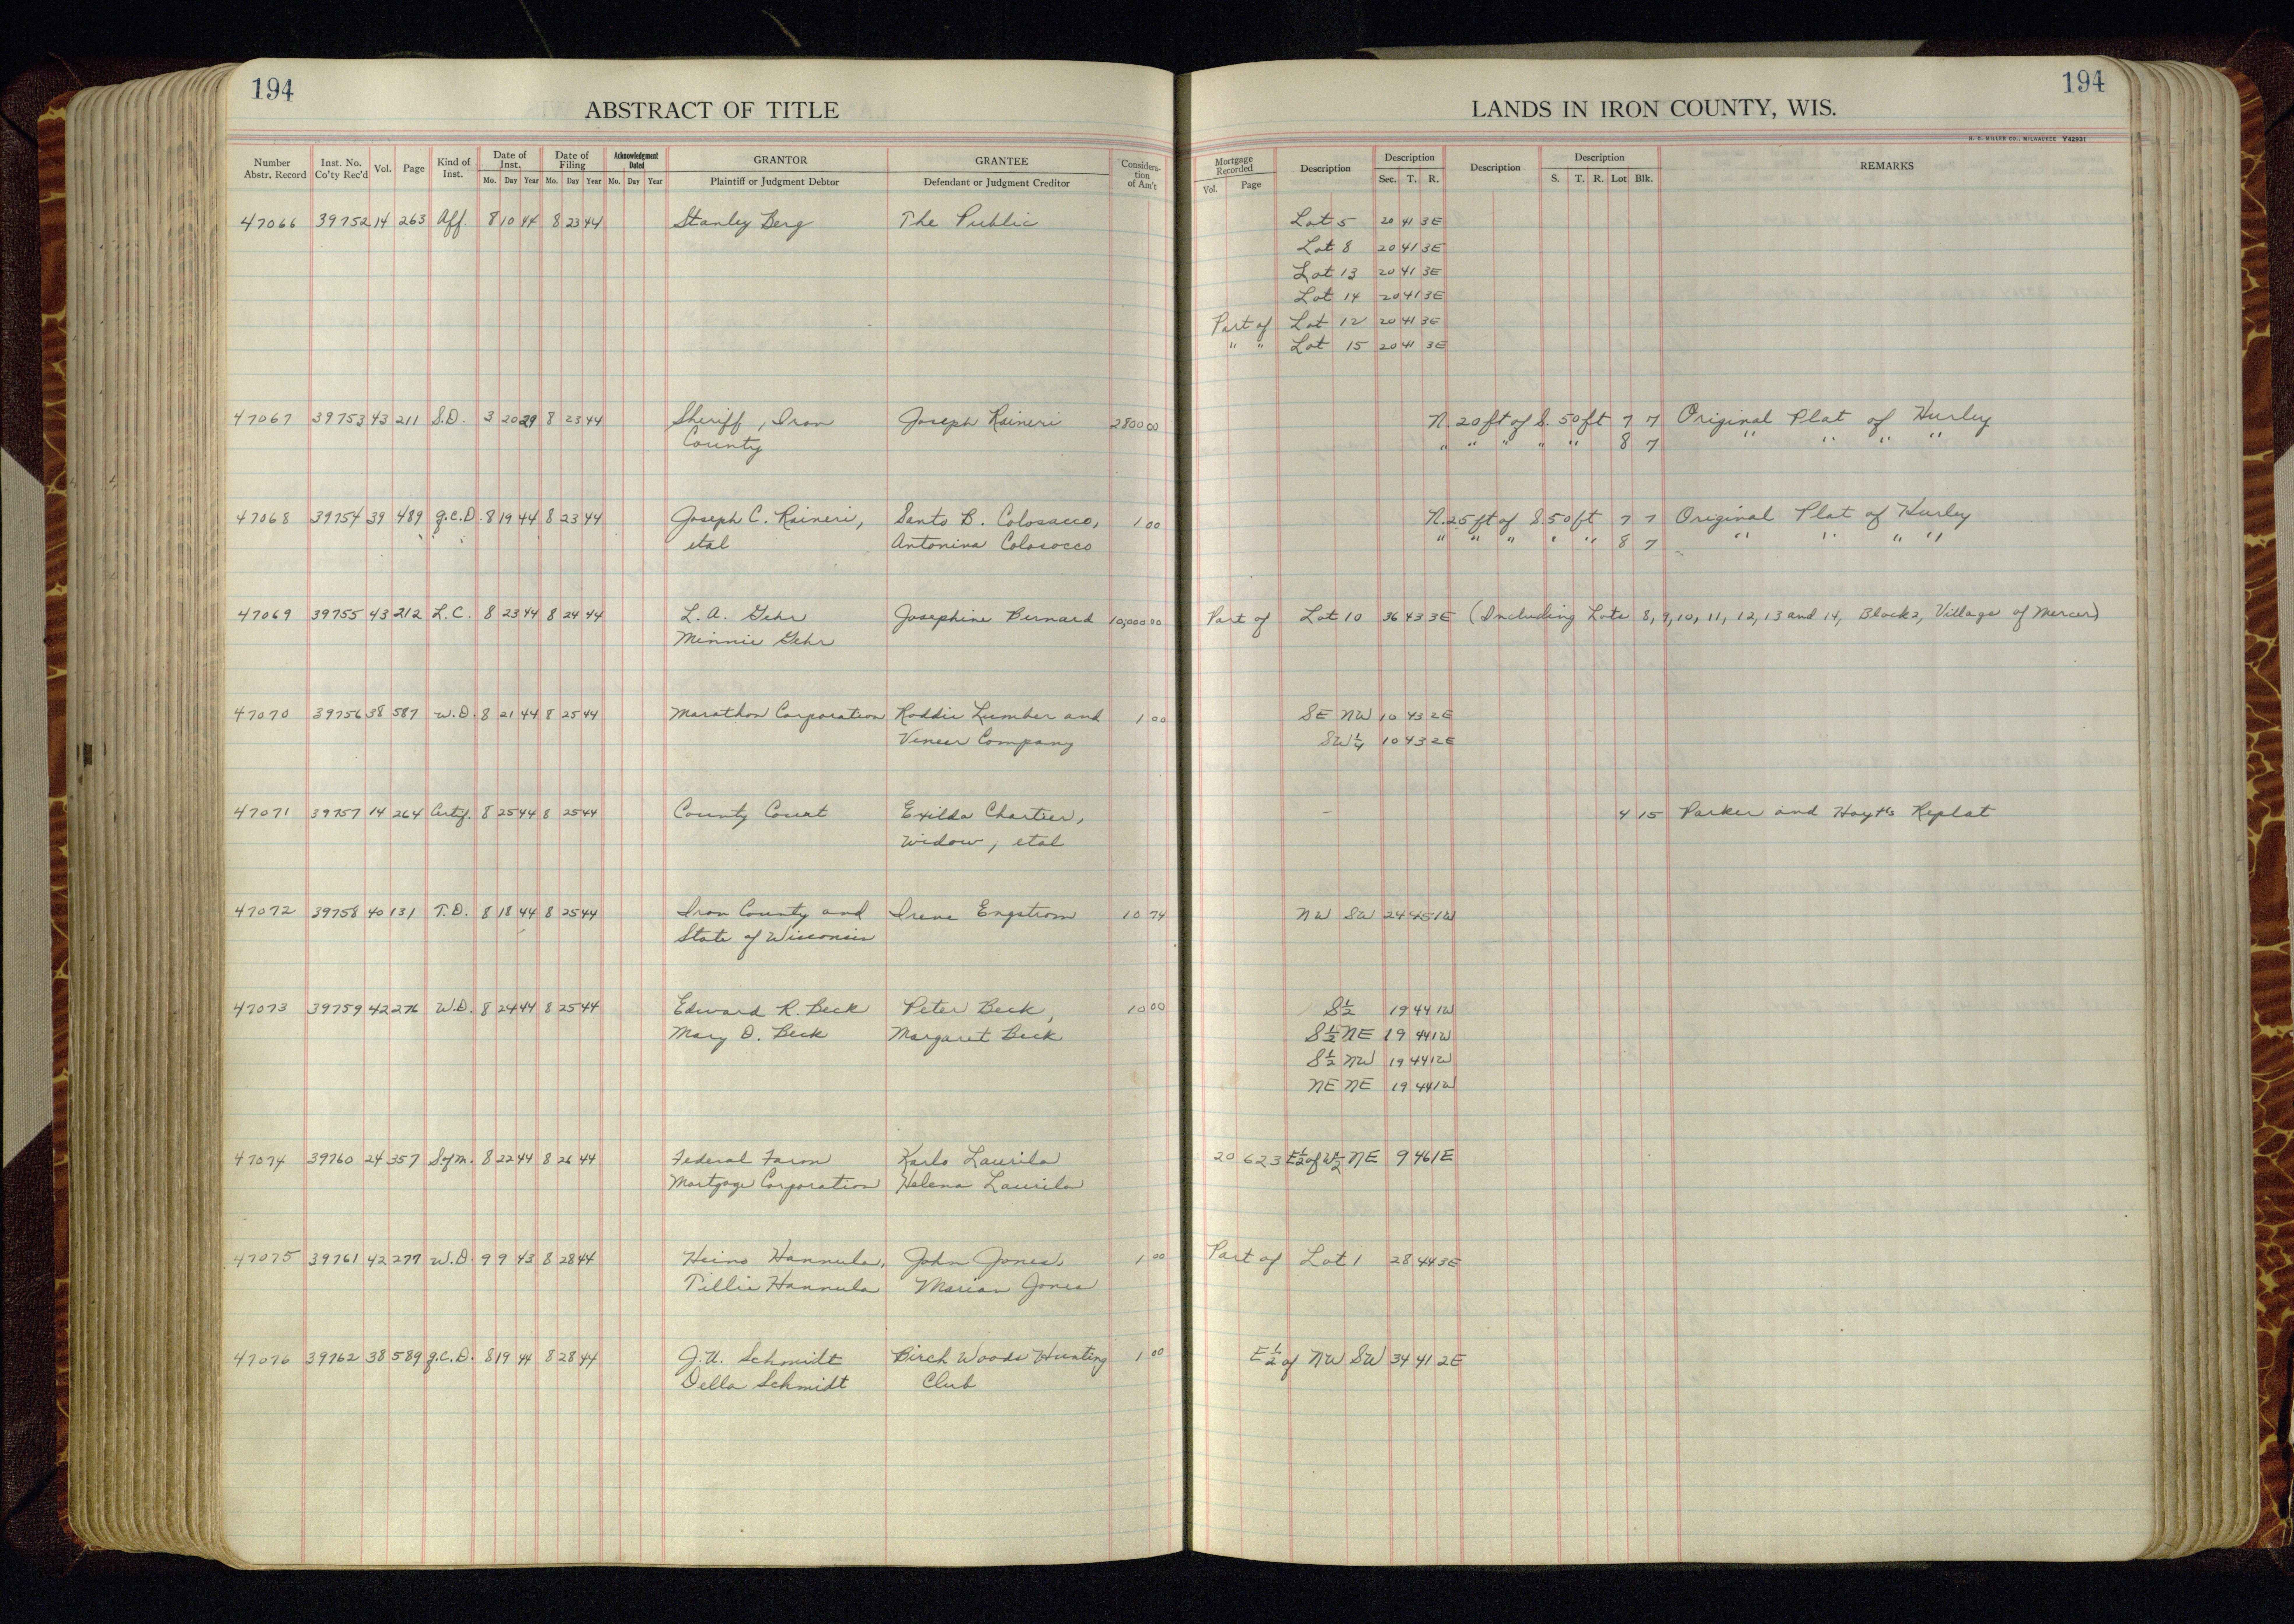 194
ABSTRACT OF TITLE
Number Abstr. Record Inst. No. Co'ty Rec'd Vol. Page Kind of Inst. Date of Inst. Mo. Day Year Date of Filing Mo. Day Year Acknowledgment Dated Mo. Day Year GRANTOR Plaintiff or Judgment Debtor GRANTEE Defendant or Judgment Creditor Considera-tion of Am't
47066 39752 14 263 Aff. 8 10 44 8 23 44 Stanley Berg The Public
47067 39753 43 211 S.D. 3 20 29 8 23 44 Sheriff, Iron Joseph Raineri 2800 00
County
47068 39754 39 489 q.c.D. 8 19 44 8 23 44 Joseph C. Raineri, Santo B. Colosacco, 1 00
etal Antonina Colosocco
47069 39755 43 212 L.C. 8 23 44 8 24 44 L. A. Gehr Josephine Bernard 10,000 00
Minnie Gehr
47070 39756 38 587 W.D. 8 21 44 8 25 44 Marathon Corporation Roddis Lumber and 1 00
Veneer Company
47071 39757 14 264 Certif. 8 25 44 8 25 44 County Court Exilda Chartier,
Widow, etal
47072 39758 40 131 T.D. 8 18 44 8 25 44 Iron County and Irene Engstrom 10 74
State of Wisconsin
47073 39759 42 276 W.D. 8 24 44 8 25 44 Edward R. Beck Peter Beck, 10 00
Mary D. Beck Margaret Beck
47074 39760 24 357 S.of m. 8 22 44 8 26 44 Federal Farm Karlo Laurila
Mortgage Corporation Helena Laurila
47075 39761 42 277 W.D. 9 9 43 8 28 44 Heino Hannula, John Jones, 1 00
Tillie Hannula Marian Jones
47076 39762 38 589 q.C.D. 8 19 44 8 28 44 J. A. Schmidt Birch Woods Hunting 1 00
Della Schmidt Club
194
LANDS IN IRON COUNTY, WIS.
H. C. MILLER CO., MILWAUKEE Y42931
Mortgage Recorded Vol. Page Description Description Sec. T. R. Description Description S. T. R. Lot Blk. REMARKS
Lot 5 20 41 3E
Lot 8 20 41 3E
Lot 13 20 41 3E
Lot 14 20 41 3E
Part of Lot 12 20 41 3E
" " Lot 15 20 41 3E
N. 20 ft of S. 50 ft 7 7 Original Plat of Hurley
" " " " " 8 7 " " " "
N. 25 ft of S. 50 ft 7 7 Original Plat of Hurley
" " " " " 8 7 " " " "
Part of Lot 10 36 43 3E (Including Lots 8, 9, 10, 11, 12, 13 and 14, Block 2, Village of Mercer)
SE NW 10 43 2E
SW 1/4 10 43 2E
4 15 Parker and Hoyt's Replat
NW SW 24 45 1W
S 1/2 19 44 1W
S 1/2 NE 19 44 1W
S 1/2 NW 19 44 1W
NE NE 19 44 1W
20 623 E 1/2 of W 1/2 NE 9 46 1E
Part of Lot 1 28 44 3E
E 1/2 of NW SW 34 41 2E